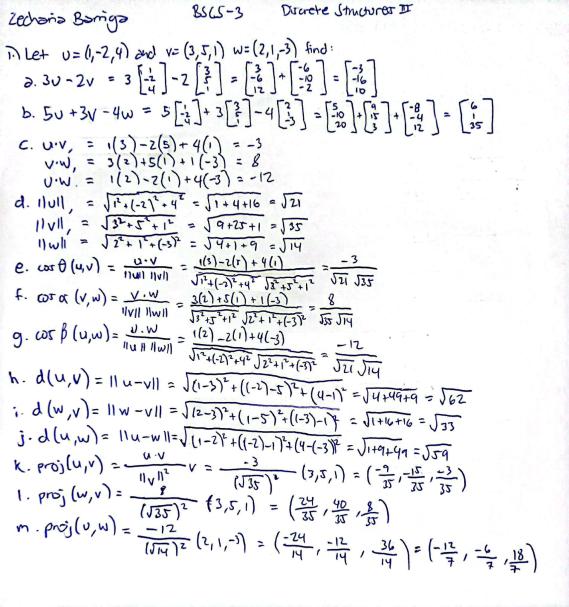 Zecharia Barriga BSCS-3 Discrete Structures II
1.) Let u=(1,-2,4) and v=(3,5,1) w=(2,1,-3) find:
a. 3u-2v = 3[1 -2 4] - 2[3 5 1] = [3 -6 12] + [-6 -10 -2] = [-3 -16 10]
b. 5u+3v-4w = 5[1 -2 4] + 3[3 5 1] - 4[2 1 -3] = [5 -10 20] + [9 15 3] + [-8 -4 12] = [6 1 35]
c. u·v, = 1(3)-2(5)+4(1) = -3
v·w, = 3(2)+5(1)+1(-3) = 8
u·w. = 1(2)-2(1)+4(-3) = -12
d. ||u||, = √1²+(-2)²+4² = √1+4+16 = √21
||v||, = √3²+5²+1² = √9+25+1 = √35
||w||, = √2²+1²+(-3)² = √4+1+9 = √14
e. cos θ (u,v) = u·v / ||u|| ||v|| = 1(3)-2(5)+4(1) / √1²+(-2)²+4² √3²+5²+1² = -3 / √21 √35
f. cos α (v,w) = v·w / ||v|| ||w|| = 3(2)+5(1)+1(-3) / √3²+5²+1² √2²+1²+(-3)² = 8 / √35 √14
g. cos β (u,w) = u·w / ||u|| ||w|| = 1(2)-2(1)+4(-3) / √1²+(-2)²+4² √2²+1²+(-3)² = -12 / √21 √14
h. d(u,v) = ||u-v|| = √(1-3)²+((-2)-5)²+(4-1)² = √4+49+9 = √62
i. d(w,v) = ||w-v|| = √(2-3)²+(1-5)²+(-3)-1)² = √1+16+16 = √33
j. d(u,w) = ||u-w|| = √(1-2)²+((-2)-1)²+(4-(-3))² = √1+9+49 = √59
k. proj(u,v) = u·v / ||v||² v = -3 / (√35)² (3,5,1) = (-9/35, -15/35, -3/35)
l. proj(w,v) = 8 / (√35)² (3,5,1) = (24/35, 40/35, 8/35)
m. proj(u,w) = -12 / (√14)² (2,1,-3) = (-24/14, -12/14, 36/14) = (-12/7, -6/7, 18/7)